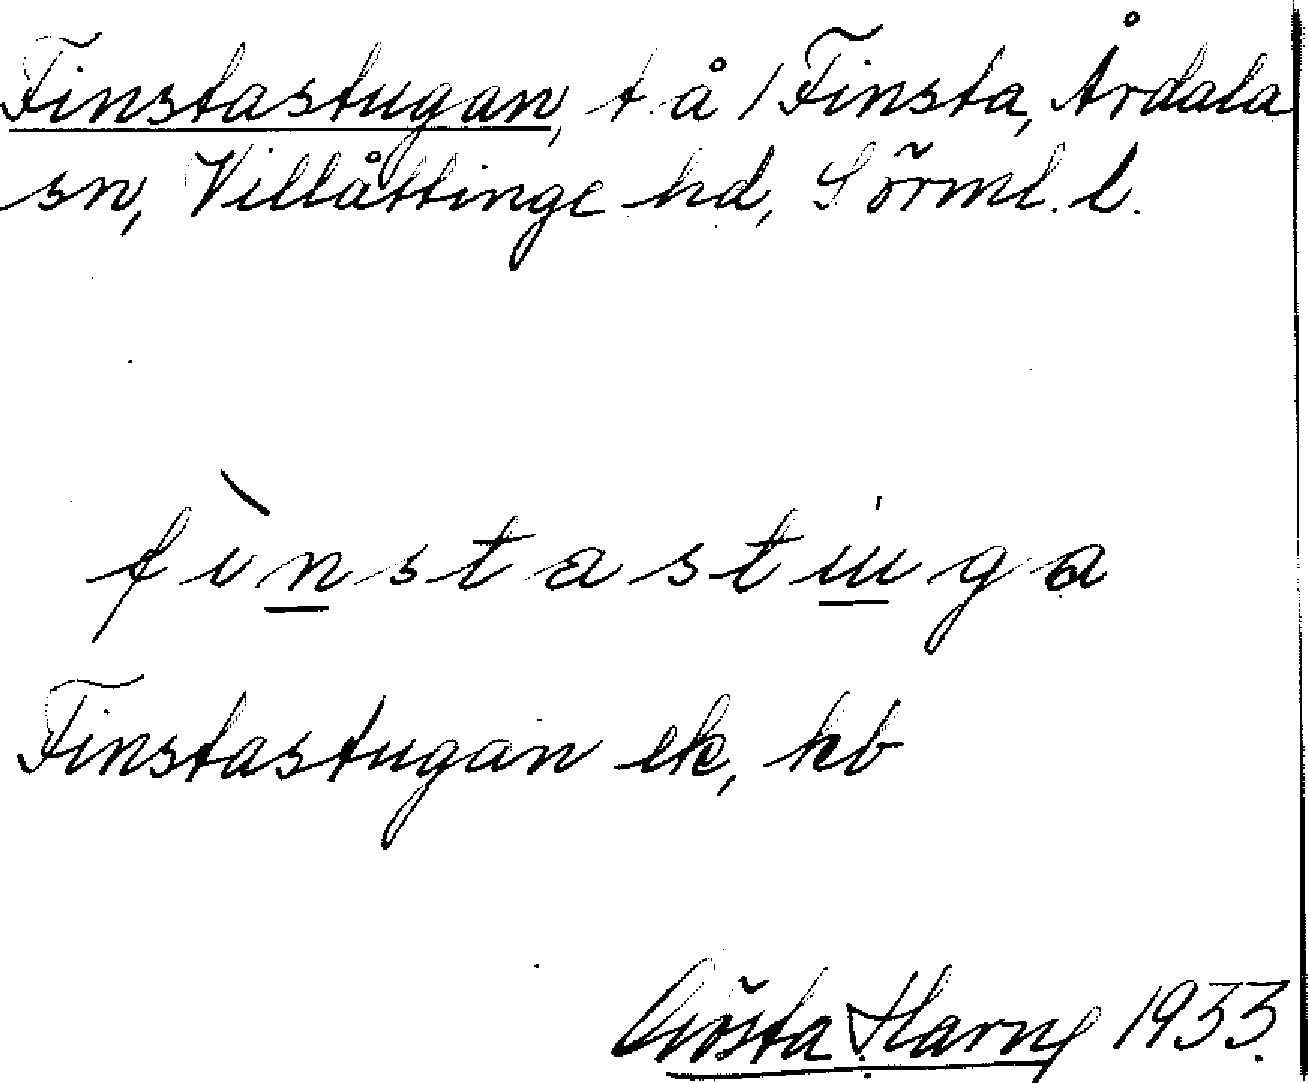 Finstastugan, t å 1 Finsta, Årdala
sn, Villåttinge hd, Sörml. l.
fìnstastuga
Finstastugan ek, kb
Gösta Harne 1933.